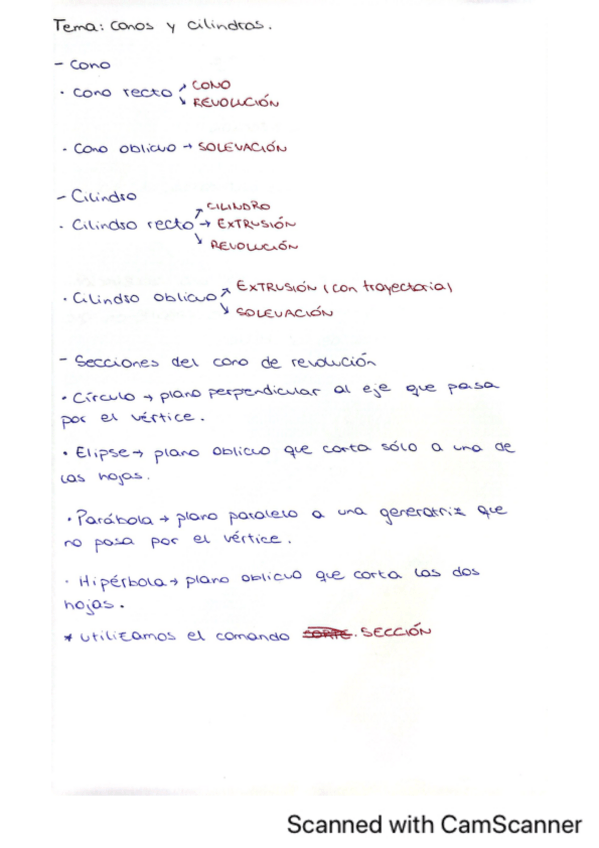 Tema: conos y cilindros.
- Cono
· Cono recto ↗ CONO
↘ REVOLUCIÓN
· Cono oblicuo → SOLEVACIÓN
- Cilindro
↗ CILINDRO
· Cilindro recto → EXTRUSIÓN
↘ REVOLUCIÓN
· Cilindro oblicuo ↗ EXTRUSIÓN (con trayectoria)
↘ SOLEVACIÓN
- Secciones del cono de revolución
· Círculo → plano perpendicular al eje que pasa
por el vértice.
· Elipse → plano oblicuo que corta sólo a una de
las hojas.
· Parábola → plano paralelo a una generatriz que
no pasa por el vértice.
· Hipérbola → plano oblicuo que corta las dos
hojas.
* utilizamos el comando CORTE. SECCIÓN
Scanned with CamScanner